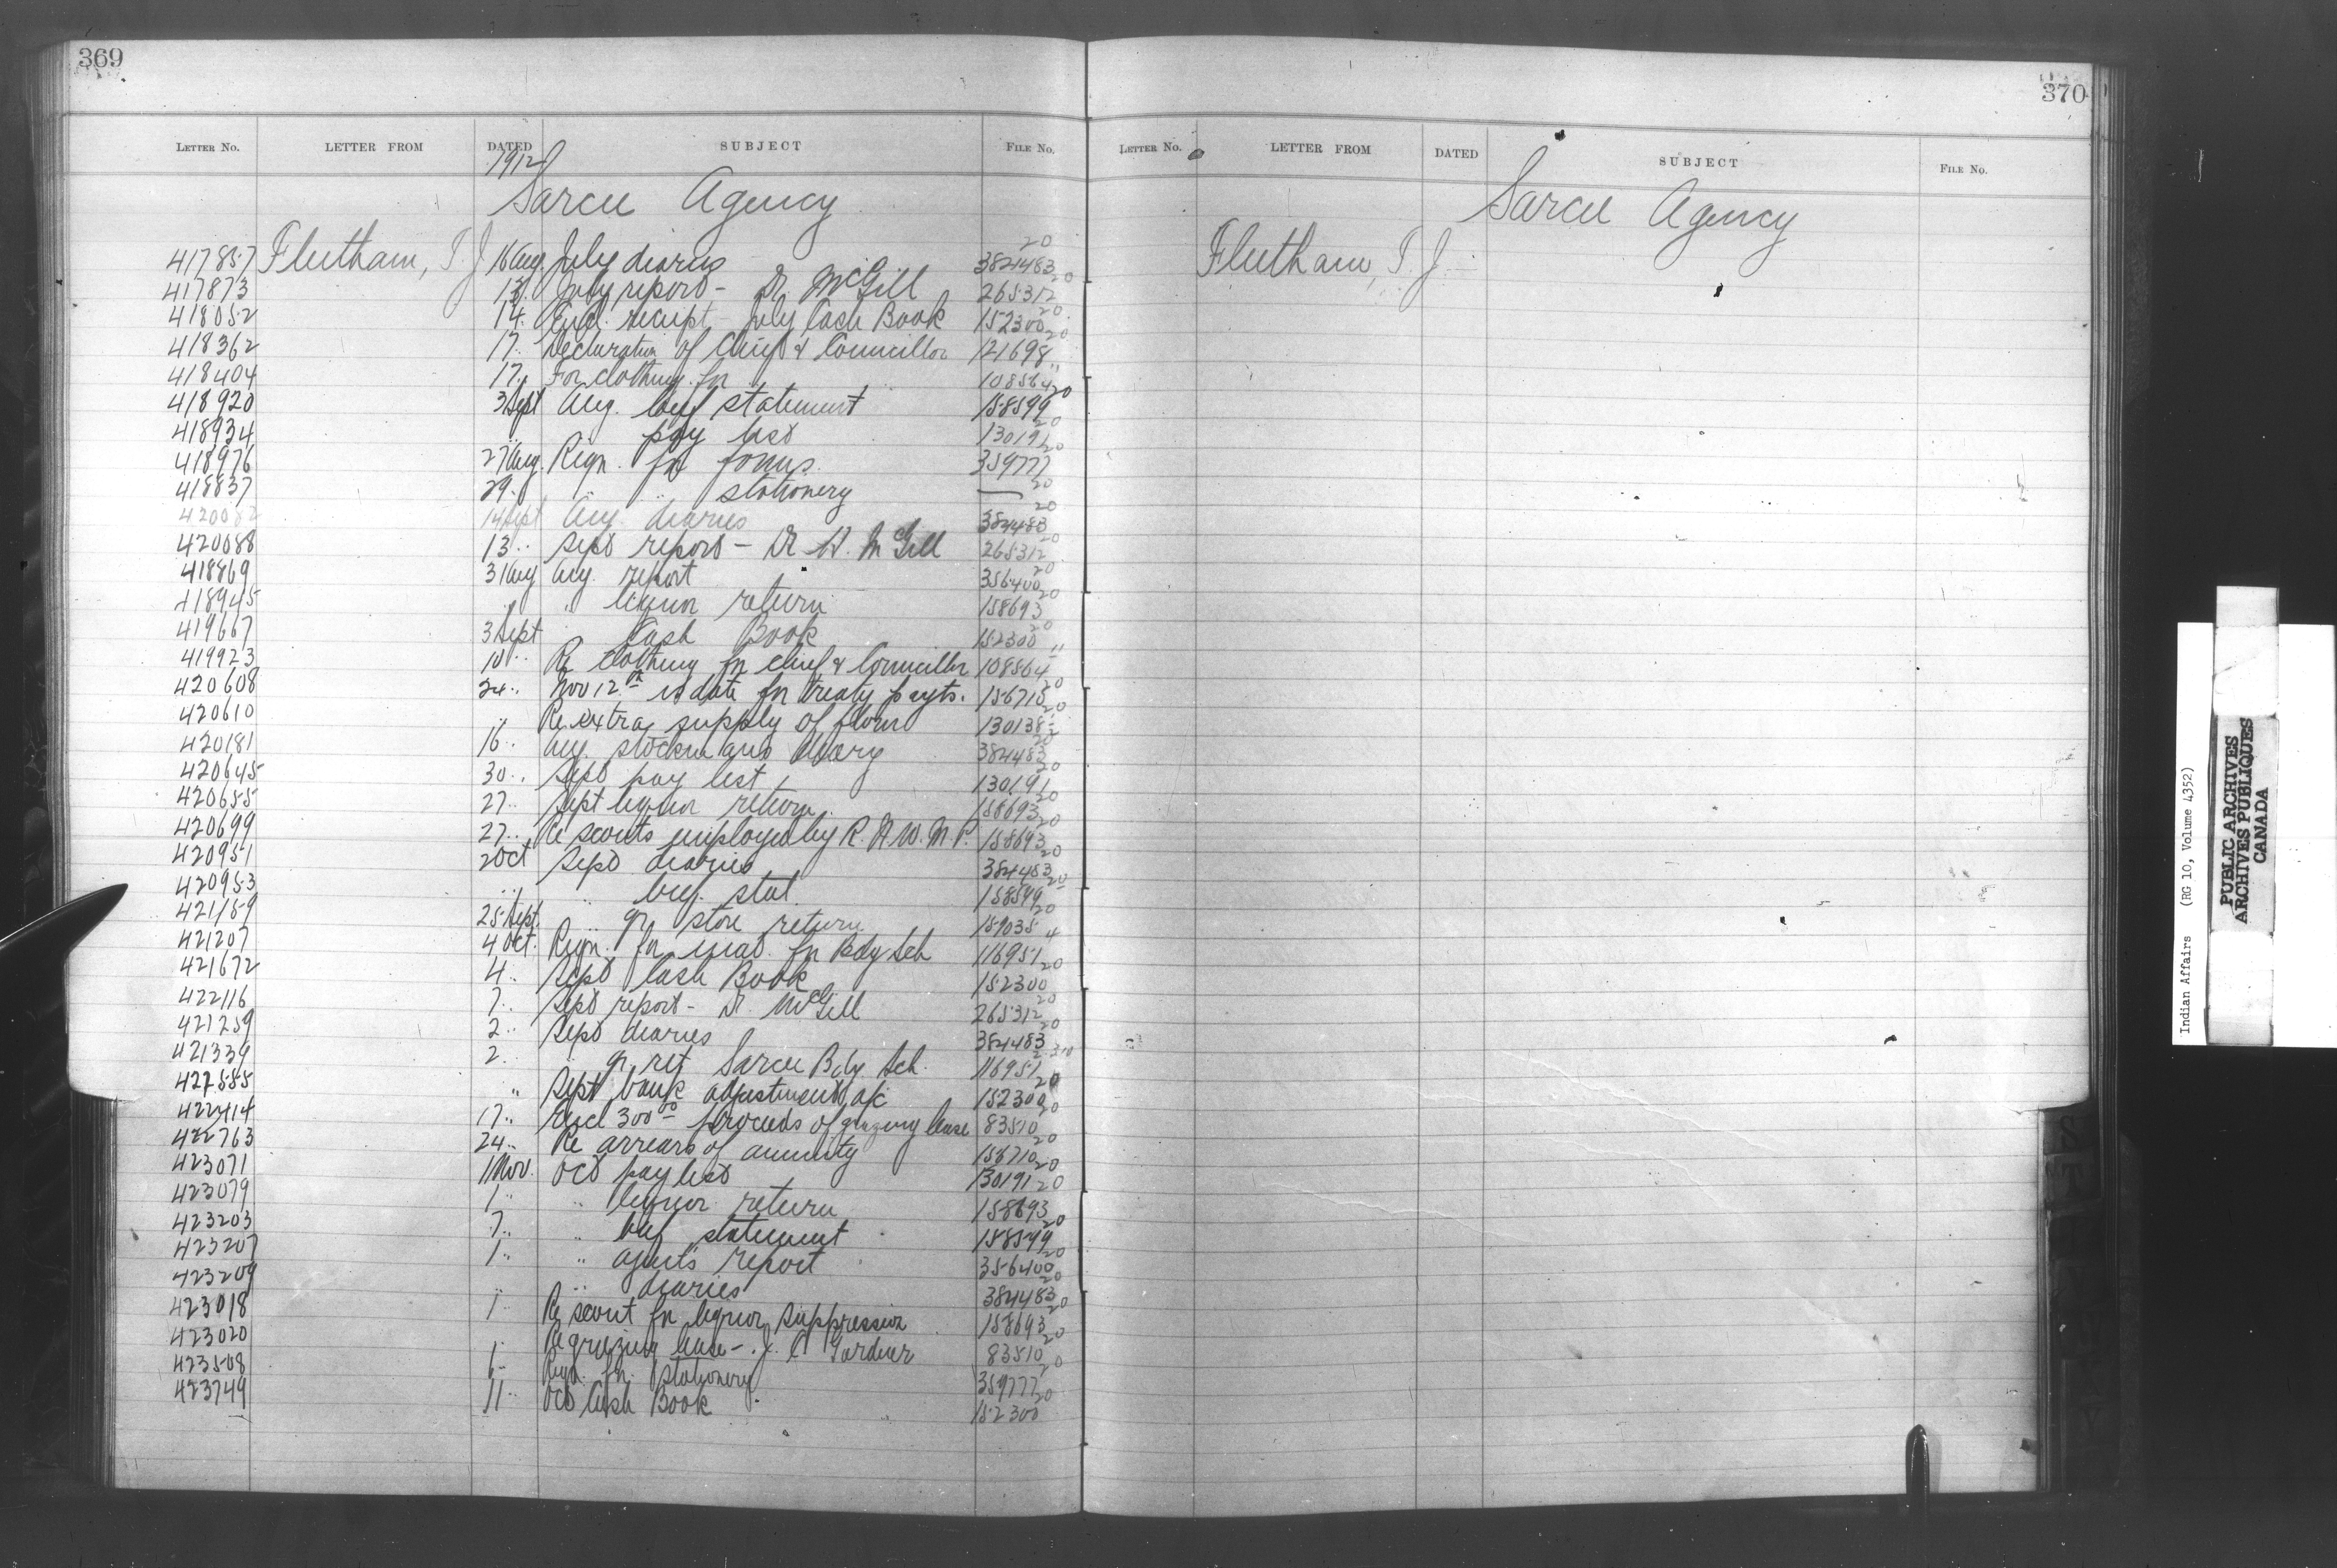 369
LETTER NO. LETTER FROM DATED SUBJECT FILE No.
1912
Sarcee Agency
417857 Fleetham, T. J. 16 Aug. July diaries 384483 20
417873 13 July report - Dr McGill 265312 20
418052 14 Encl. receipt - July Cash Book 152300 20
418362 17 Declaration of Chief & Councillor 121698 20
418404 17 For clothing for 108564 "
418920 3 Sept Aug. beef statement 158599 20
418934 " " pay list 130191 20
418976 27 Aug. Reqn. for forms 359777 20
418837 29 " " stationery — 20
420082 14 Sept Aug. diaries 384483 20
420088 13 " Sept report - Dr H. McGill 265312 20
418869 31 Aug Aug. report 356400 20
418945 " " liquor return 158693 20
419667 3 Sept " Cash Book 152300 20
419923 10 " Re clothing for chief & Councillor 108564 "
420608 24 " Nov 12th is date for treaty payts. 156710 20
420610 " Re extra supply of flour 130138-2 20
420181 16 " Aug. stockman's diary 384483 20
420645 30 " Sept pay list 130191 20
420655 27 " Sept liquor return 158693 20
420699 27 " Re scouts employed by R. N. W. M. P. 158693 20
420951 2 Oct Sept diaries 384483 20
420953 " " beef stat. 158599 20
421159 25 Sept. " qr store return 159035 20
421207 4 Oct. Reqn. for mat. for Bdg Sch 116951 4
421672 4 " Sept Cash Book 152300 20
422116 7 " Sept report - Dr. McGill 265312 20
421259 2 " Sept diaries 384483 20
421339 2 " " qr ret Sarcee Bdg Sch. 116951-2
427585 " Sept bank adjustment a/c 152300 20
422414 17 " Encl 300 00 proceeds of grazing lease 83510 20
422763 24 " Re arrears of annuity 156710 20
423071 1 Nov. Oct pay list 130191 20
423079 1 " " liquor return 158693 20
423203 7 " " beef statement 158599 20
423207 1 " " agent's report 356400 20
423209 " " diaries 384483 20
423018 1 " Re scout for liquor suppression 158693 20
423020 1 " Re grazing lease - J. C. Gardner 83510 20
423508 6 " Reqn. for stationery 359777 20
423749 11 " Oct Cash Book 152300 20
370
LETTER NO. LETTER FROM DATED SUBJECT FILE No.
Sarcee Agency
Fleetham, T. J.
Indian Affairs (RG 10, Volume 4352)
PUBLIC ARCHIVES
ARCHIVES PUBLIQUES
CANADA